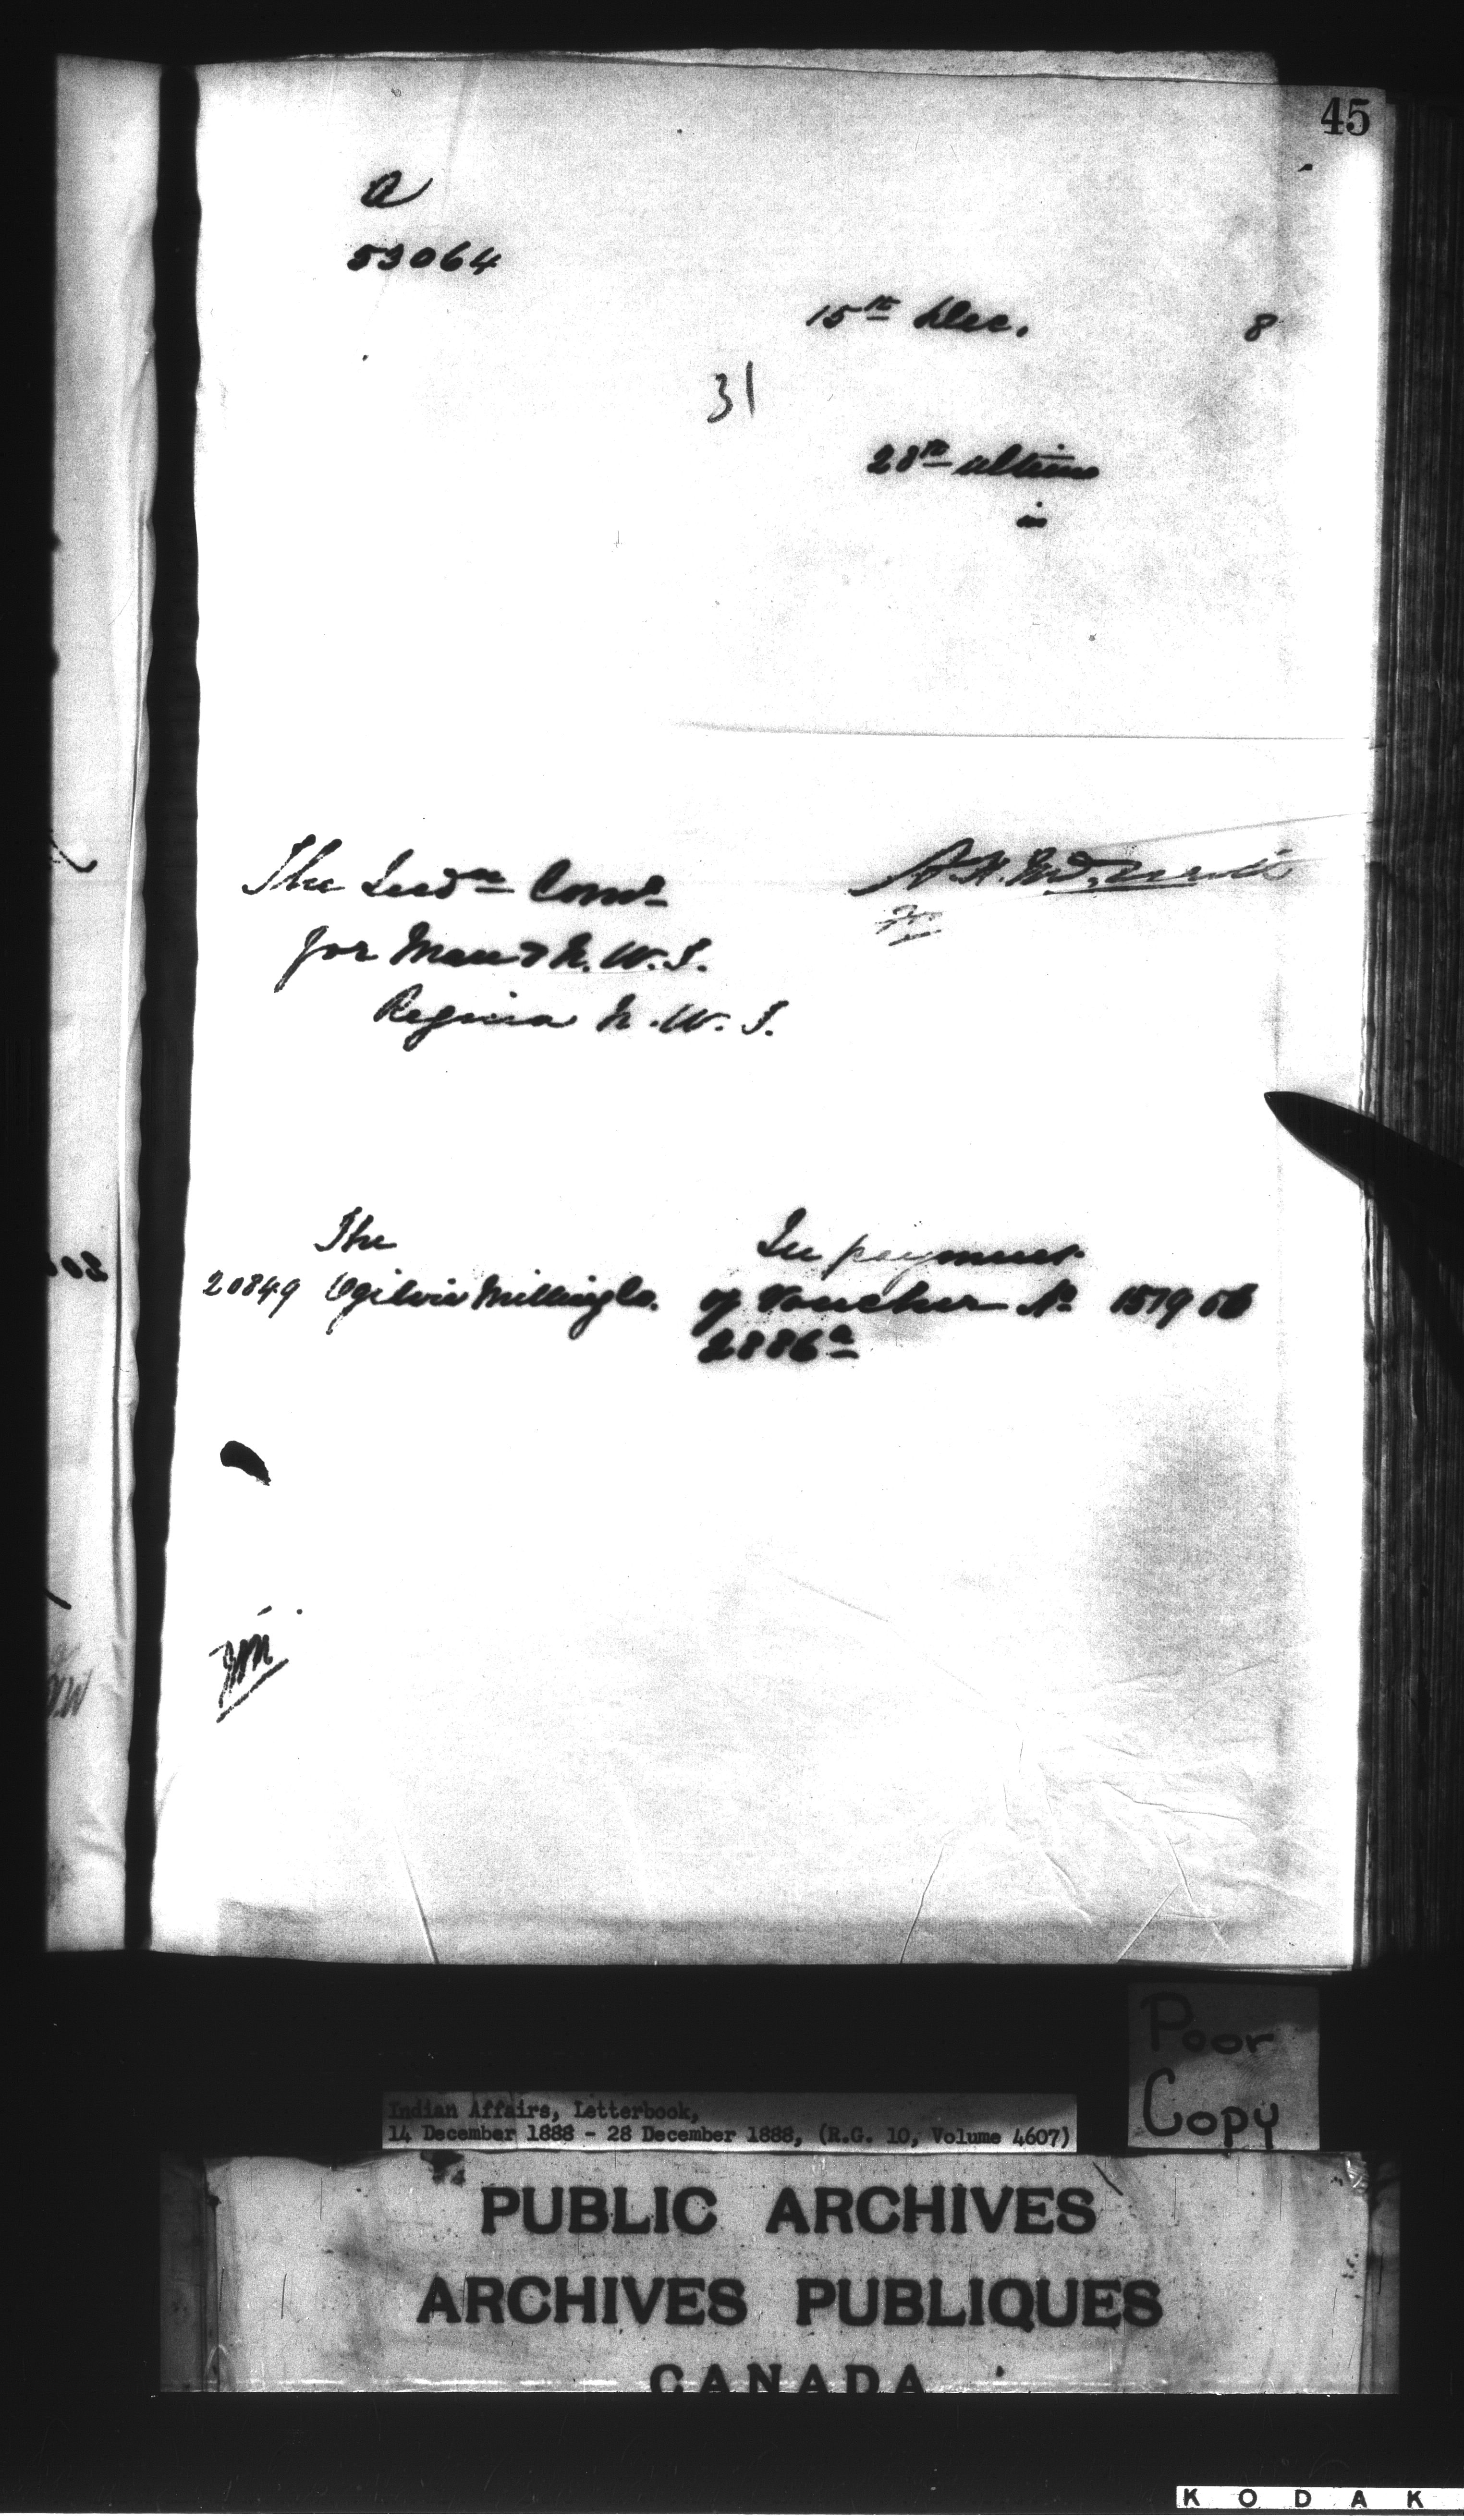 45
a
59064
15th Dec. 8
31
28th ultimo
in
The Indn Comr
for Man & N.W.T.
Regina N.W.T.
The
In payment
20849 Ogilvie Milling Co. of Voucher No 1519 06
2886a
Poor
Copy
Indian Affairs, Letterbook,
14 December 1888 - 28 December 1888, (R.G. 10, Volume 4607)
PUBLIC ARCHIVES
ARCHIVES PUBLIQUES
CANADA
KODAK